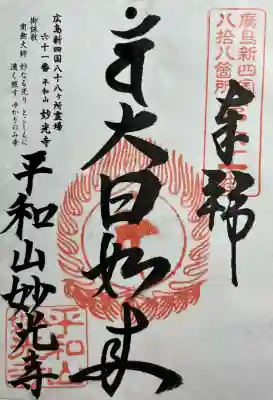 廣島新四国
八拾八箇所
奉拝
大日如来
平和山妙光寺
広島新四国八十八ヶ所霊場
六十一番 平和山 妙光寺
御詠歌
南無大師 妙なる光り とことしえに
遠く照す ゆかりのみ寺
平和山